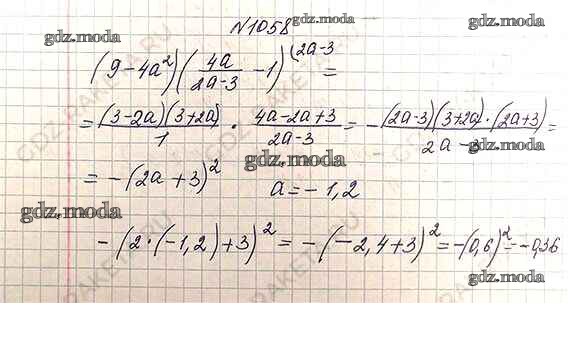 №1058
gdz.moda gdz.moda gdz.moda
(9-4a²)(4a/(2a-3) -1)^(2a-3 =
= (3-2a)(3+2a)/1 · (4a-2a+3)/(2a-3) = -(2a-3)(3+2a)·(2a+3)/(2a-3) =
gdz.moda gdz.moda
= -(2a+3)² a=-1,2
gdz.moda gdz.moda
-(2·(-1,2)+3)² = -(-2,4+3)² = -(0,6)² = -0,36
gdz.moda
GDZ.RAKETA.RU